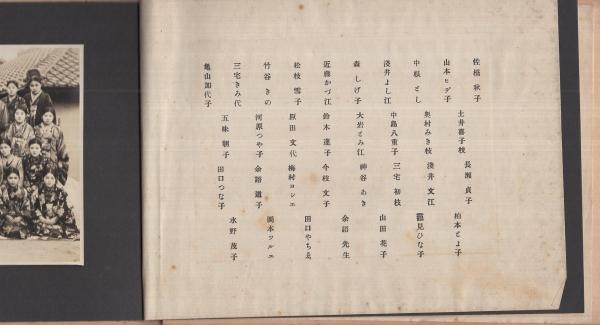 佐橋秋子
土井喜子枝
長瀬貞子
柏本とよ子
山本ヒデ子
奥村みき枝
淺井文江
鶴見ひな子
中根とし
中島八重子
三宅初枝
山田花子
淺井よし江
大岩とみ江
神谷あき
余語先生
森しげ子
鈴木蓮子
今枝文子
田口やちゑ
近藤かづ江
原田文代
梅村ヨシエ
岡本ツルエ
松枝雪子
河原つや子
余語道子
水野茂子
竹谷きの
五味朝子
田口つな子
三宅きみ代
亀山加代子